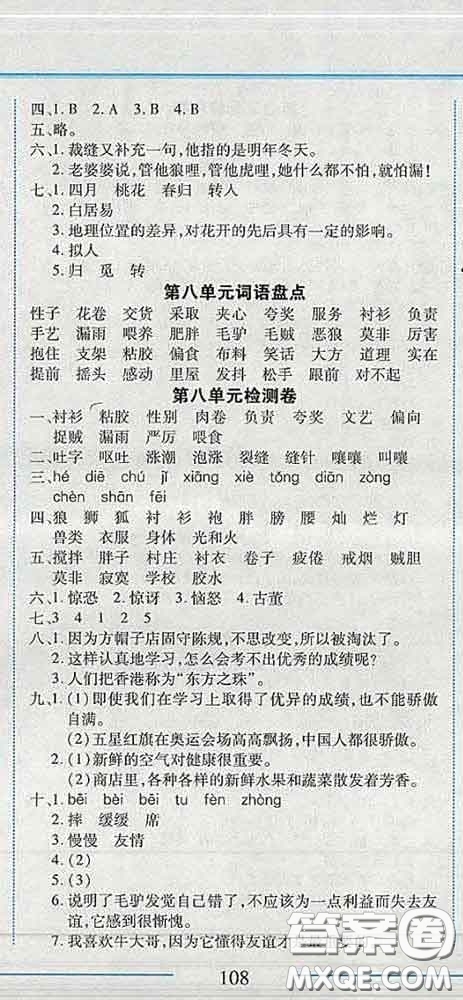 四、1. B 2. A 3. B 4. B
五、略。
六、1. 裁缝又补充一句，他指的是明年冬天。
2. 老婆婆说，管他狼哩，管他虎哩，她什么都不怕，就怕漏！
七、1. 四月 桃花 春归 转入
2. 白居易
3. 地理位置的差异，对花开的先后具有一定的影响。
4. 拟人
5. 归 觅 转
第八单元词语盘点
性子 花卷 交货 采取 夹心 夸奖 服务 衬衫 负责
手艺 漏雨 喂养 肥胖 毛驴 毛贼 恶狼 莫非 厉害
抱住 支架 粘胶 偏食 布料 笑话 大方 道理 实在
提前 摇头 感动 里屋 发抖 松手 跟前 对不起
第八单元检测卷
一、衬衫 粘胶 性别 肉卷 负责 夸奖 文艺 偏向
捉贼 漏雨 严厉 喂食
二、吐字 呕吐 涨潮 泡涨 裂缝 缝针 嚷嚷 叫嚷
三、hé diē chú jī xiǎng xiè tǒng diān zòng
chèn shān fēi
四、狼 狮 狐 衬 衫 袍 胖 膀 腰 灿 烂 灯
兽类 衣服 身体 光和火
五、搅拌 胖子 村庄 衬衣 卷子 疲倦 戒烟 贼胆
莫非 寂寞 学校 胶水
六、1. 惊恐 2. 惊讶 3. 恼怒 4. 古董
七、3 4 1 2 5
八、1. 因为方帽子店固守陈规，不思改进，所以被淘汰了。
2. 这样认真地学习，怎么会考不出优秀的成绩呢？
3. 人们把香港称为“东方之珠”。
九、1. (1) 即使我们在学习上取得了优异的成绩，也不能骄傲
自满。
(2) 五星红旗在奥运会场高高飘扬，中国人都很骄傲。
2. (1) 新鲜的空气对健康很重要。
(2) 商店里，各种各样的新鲜水果和蔬菜散发着芳香。
十、1. bēi bèi bēi tu fèn zhòng
2. 摔 缓缓 席
3. 慢慢 友情
4. (2)
5. (3)
6. 说明了毛驴发觉自己错了，不应该为一点利益而失去友
谊，它感到很惭愧。
7. 我喜欢牛大哥，因为它懂得友谊才
108
答案圈
MXQE.COM